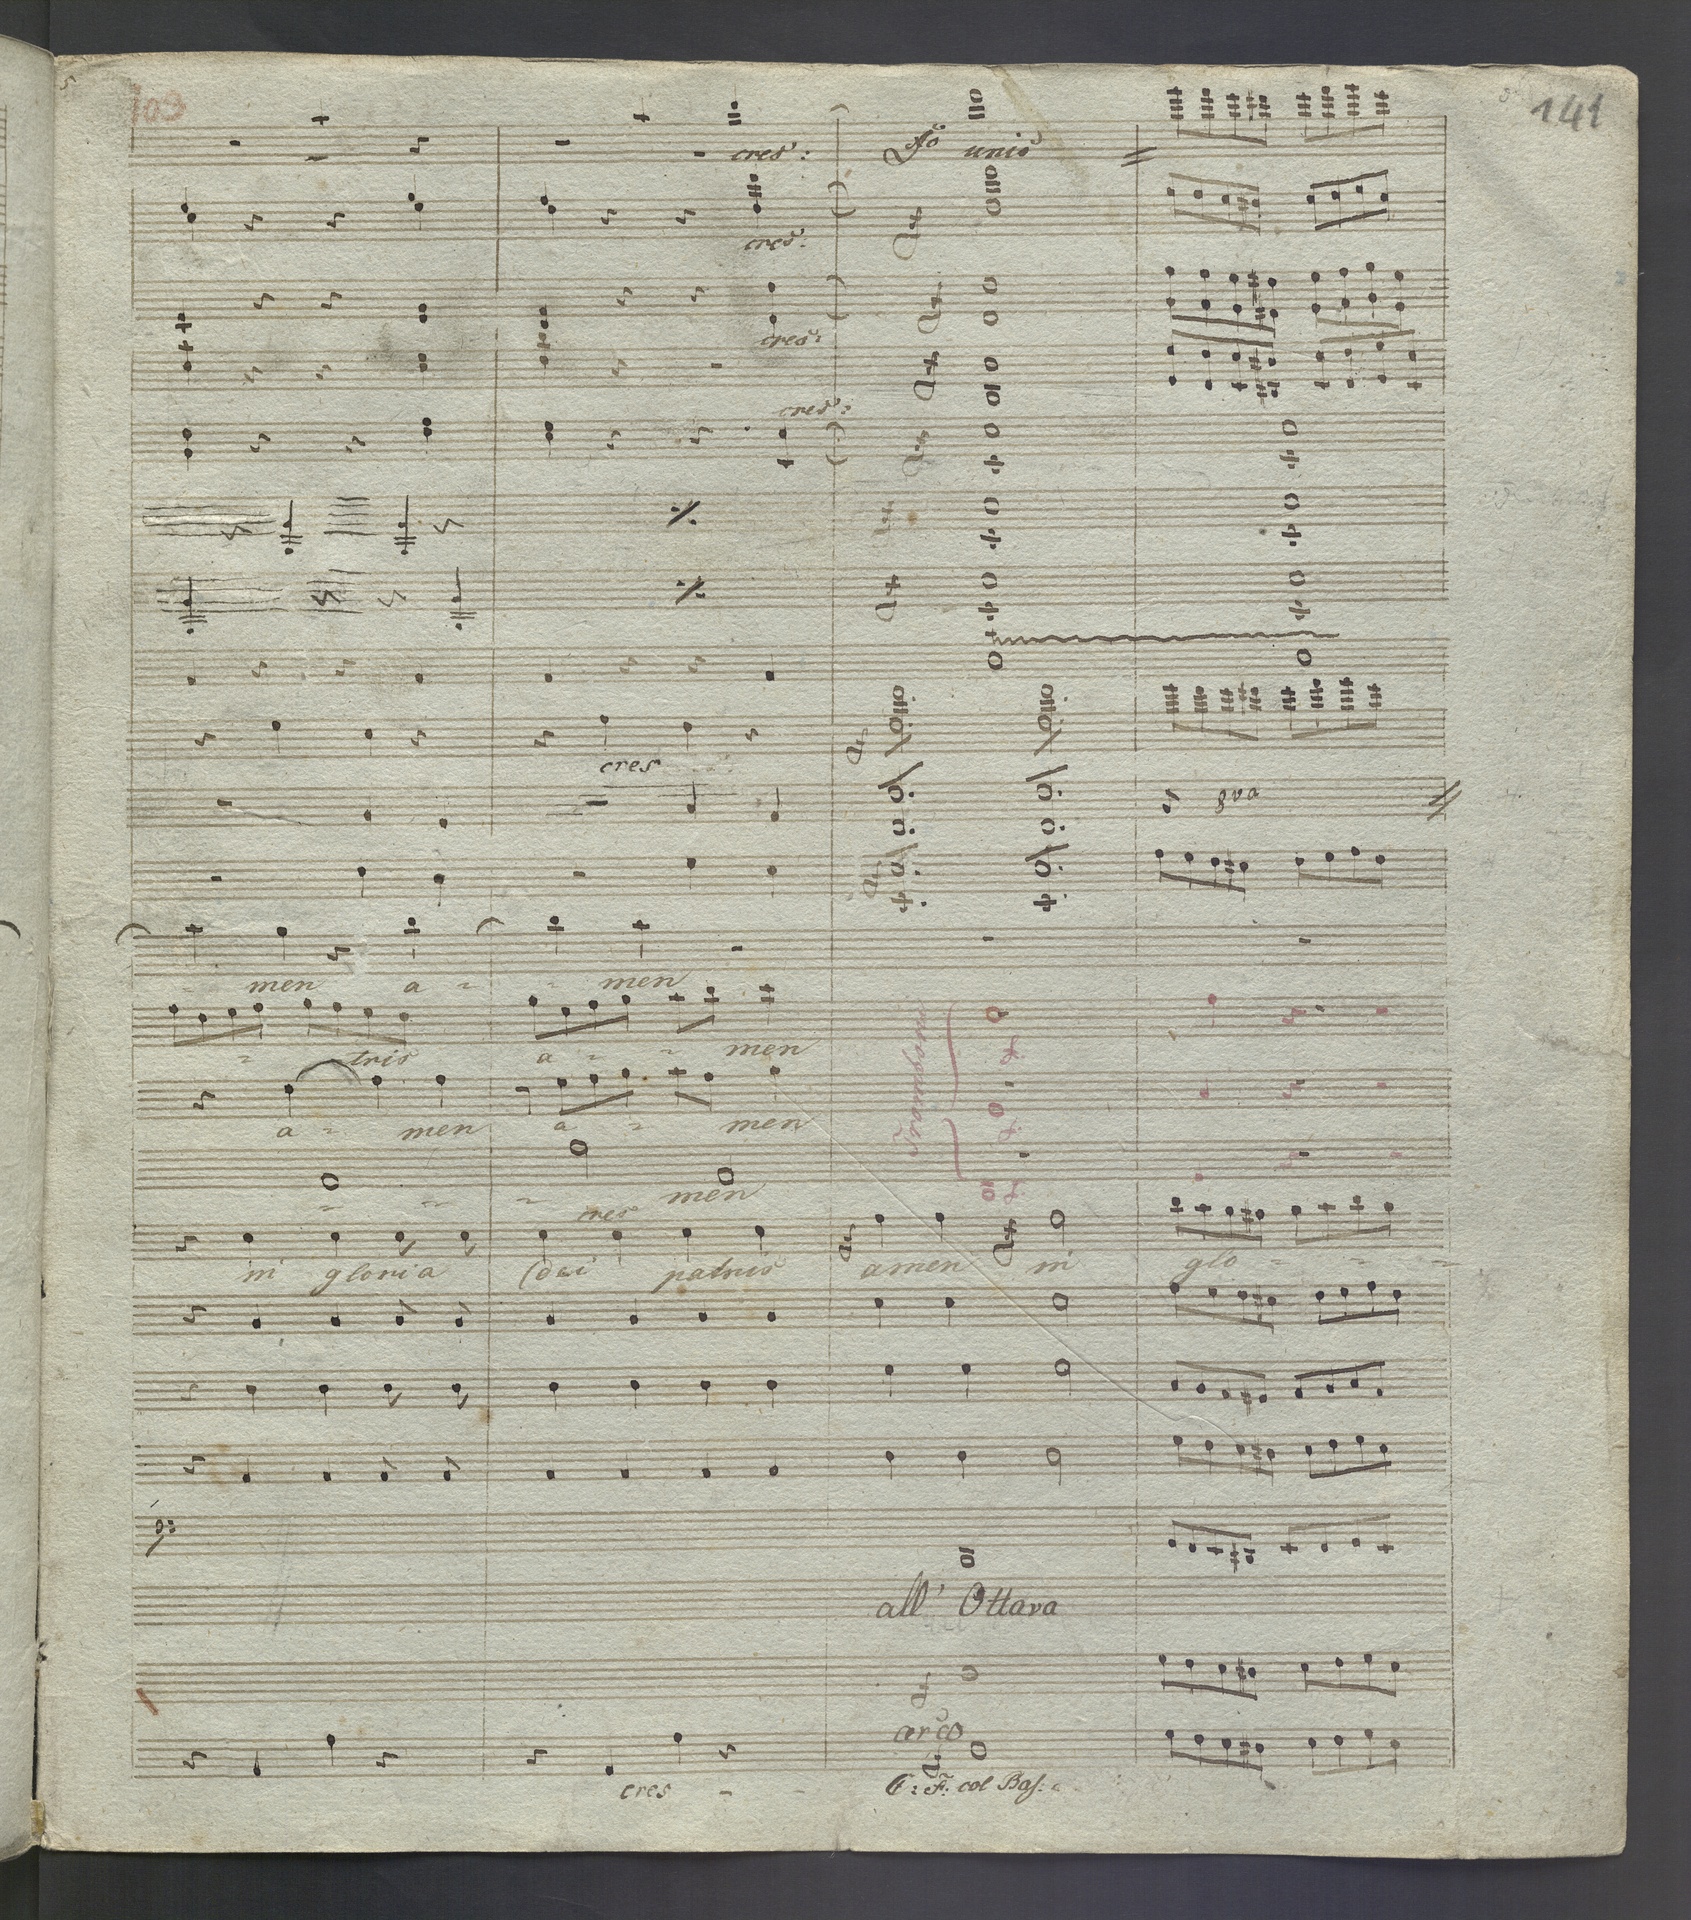 103
141
cres: ffo unis
cres:
cres:
cres:
cres
8va
men a - men
tris a - - men
a - men a - men
men
cres
in gloria dei patris amen in glo - - -
all' Ottava
arco
cres - - C: F: col Bas: